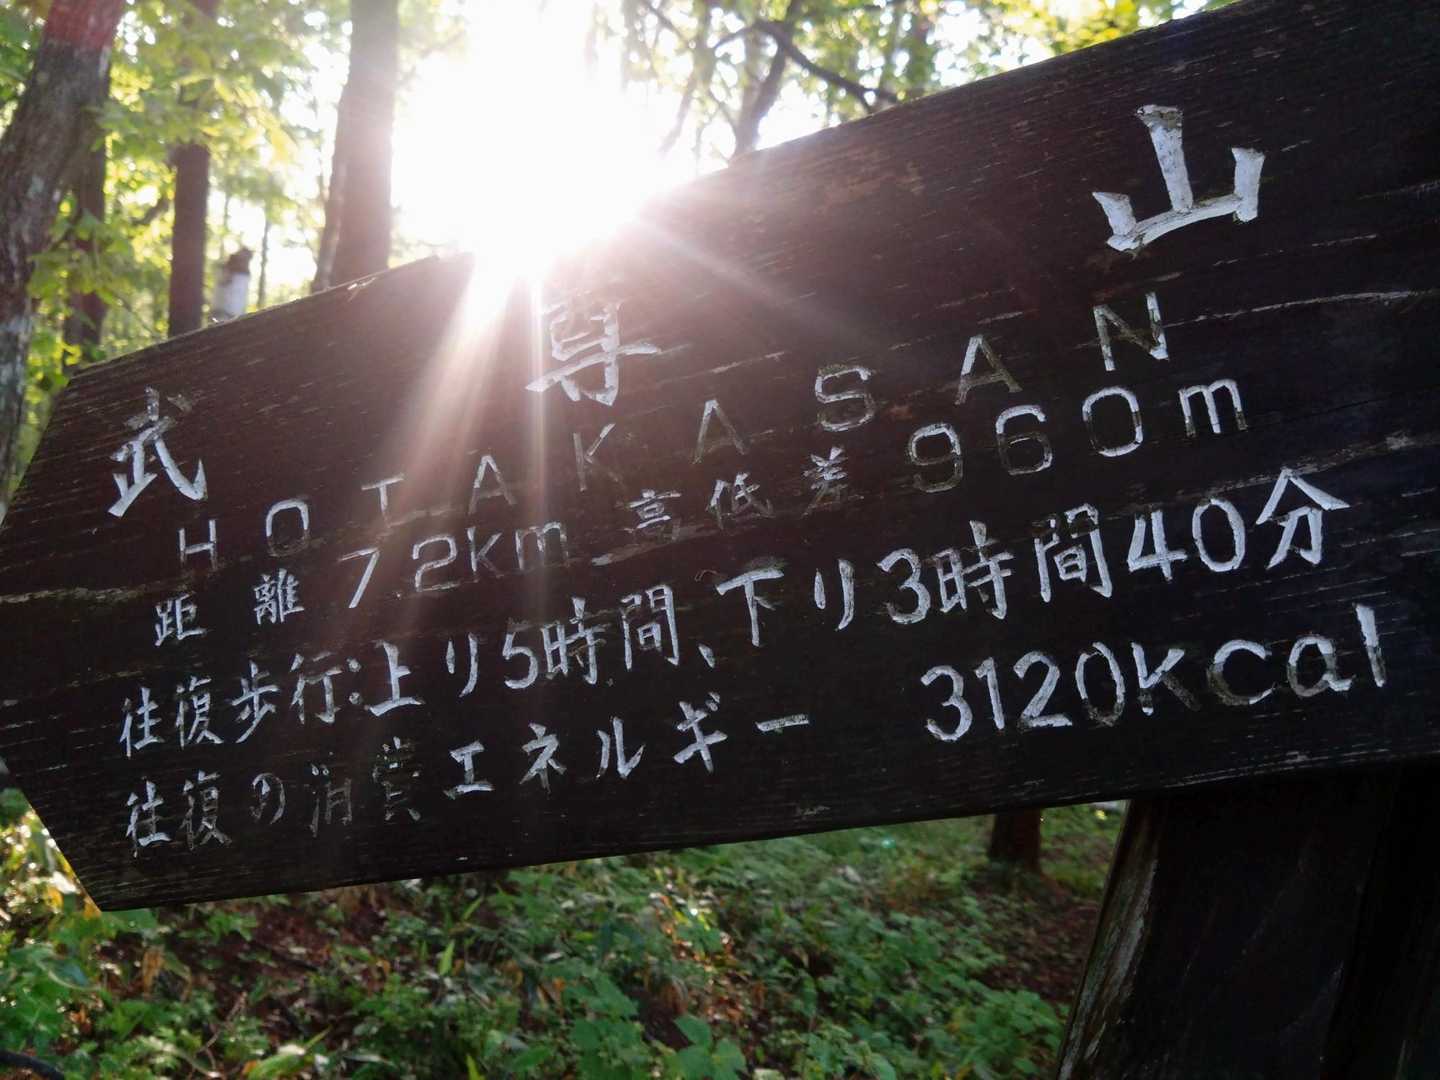 武尊山
HOTAKASAN
距離 7.2km 高低差 960m
往復歩行:上り5時間、下り3時間40分
往復の消費エネルギー 3120Kcal